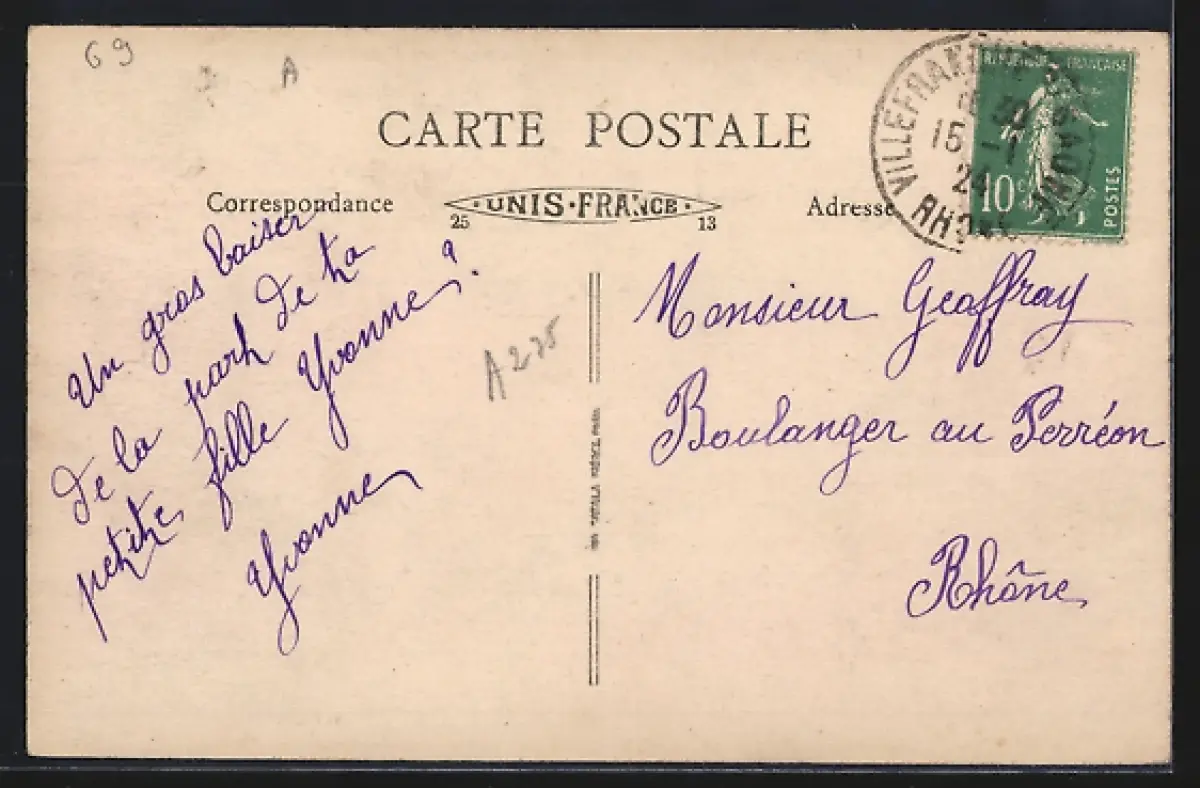 69
A
CARTE POSTALE
Correspondance
UNIS-FRANCE
25 13
Adresse
VILLEFRANCHE
RHÔNE
15 -1
24
REPUBLIQUE FRANÇAISE
10c
POSTES
Un gros baiser
de la part de ta
petite fille Yvonne?
Yvonne
A225
Monsieur Geoffray
Boulanger au Perréon
Rhône